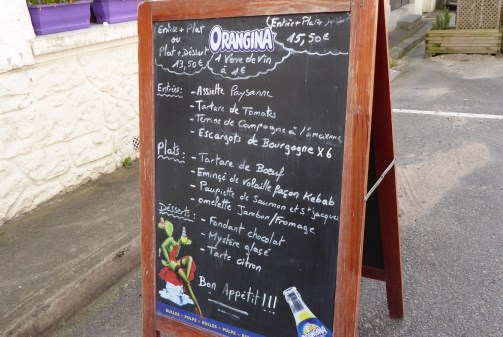 Entrée + Plat
ou
Plat + Désert
13,50 €
ORANGINA
(Entrée + Plat +
15,50€
1 Verre de Vin
à 1€
Entrées:
- Assiette Paysanne
- Tartare de Tomates
- Terrine de Campagne à l'ancienne
- Escargots de Bourgogne X 6
Plats:
- Tartare de Bœuf
- Emincé de volaille façon Kebab
- Paupiette de Saumon et St Jacques
- omelette Jambon/Fromage
Désserts:
- Fondant chocolat
- Mystère glacé
- Tarte citron
Bon Appétit!!!
BULLES - PULPE - BULLES - PULPE